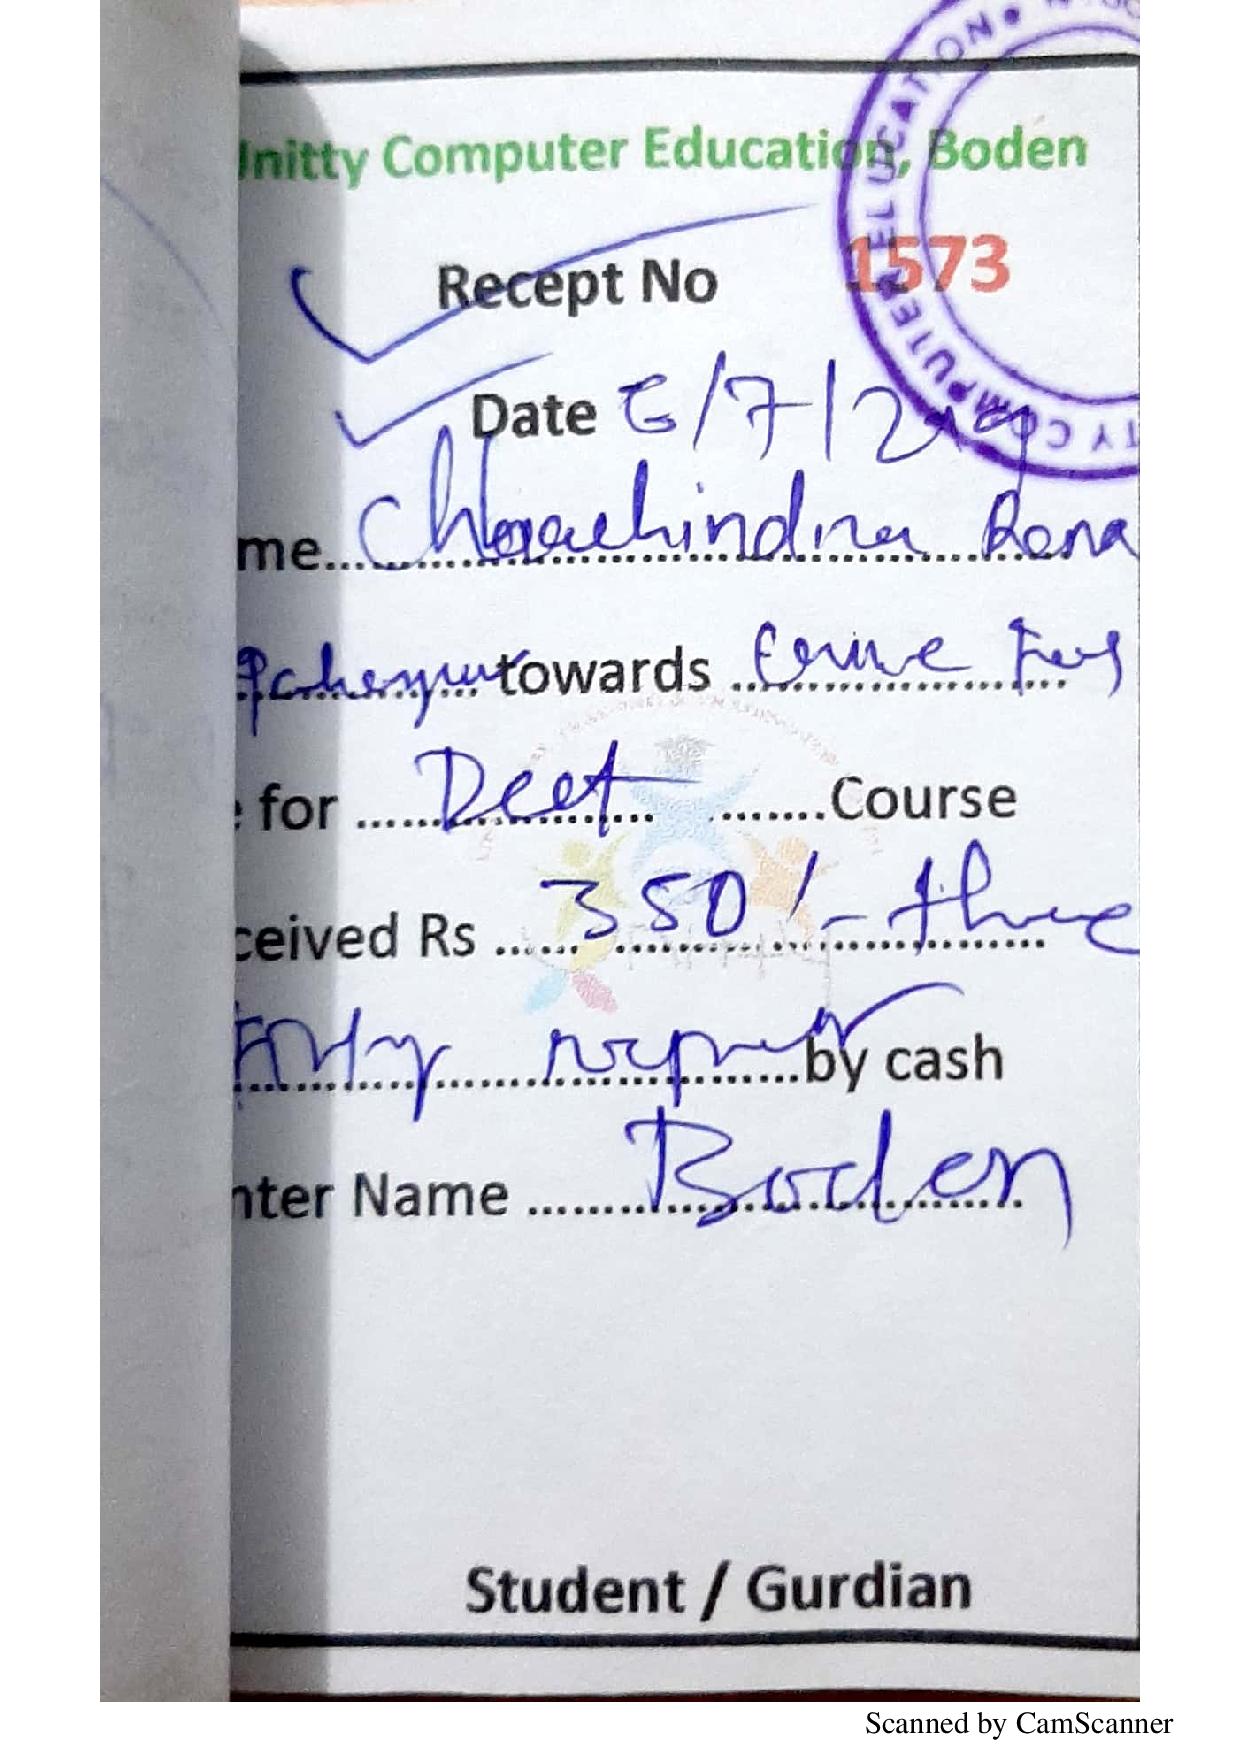 Unitty Computer Education, Boden
Recept No 1573
Date 6/7/2019
me..................... Rana
towards ........................
for ......Deet.............Course
ceived Rs ......350/- three
Fifty rupees by cash
nter Name ......Boden
Student / Gurdian
COMPUTER EDUCATION
Scanned by CamScanner